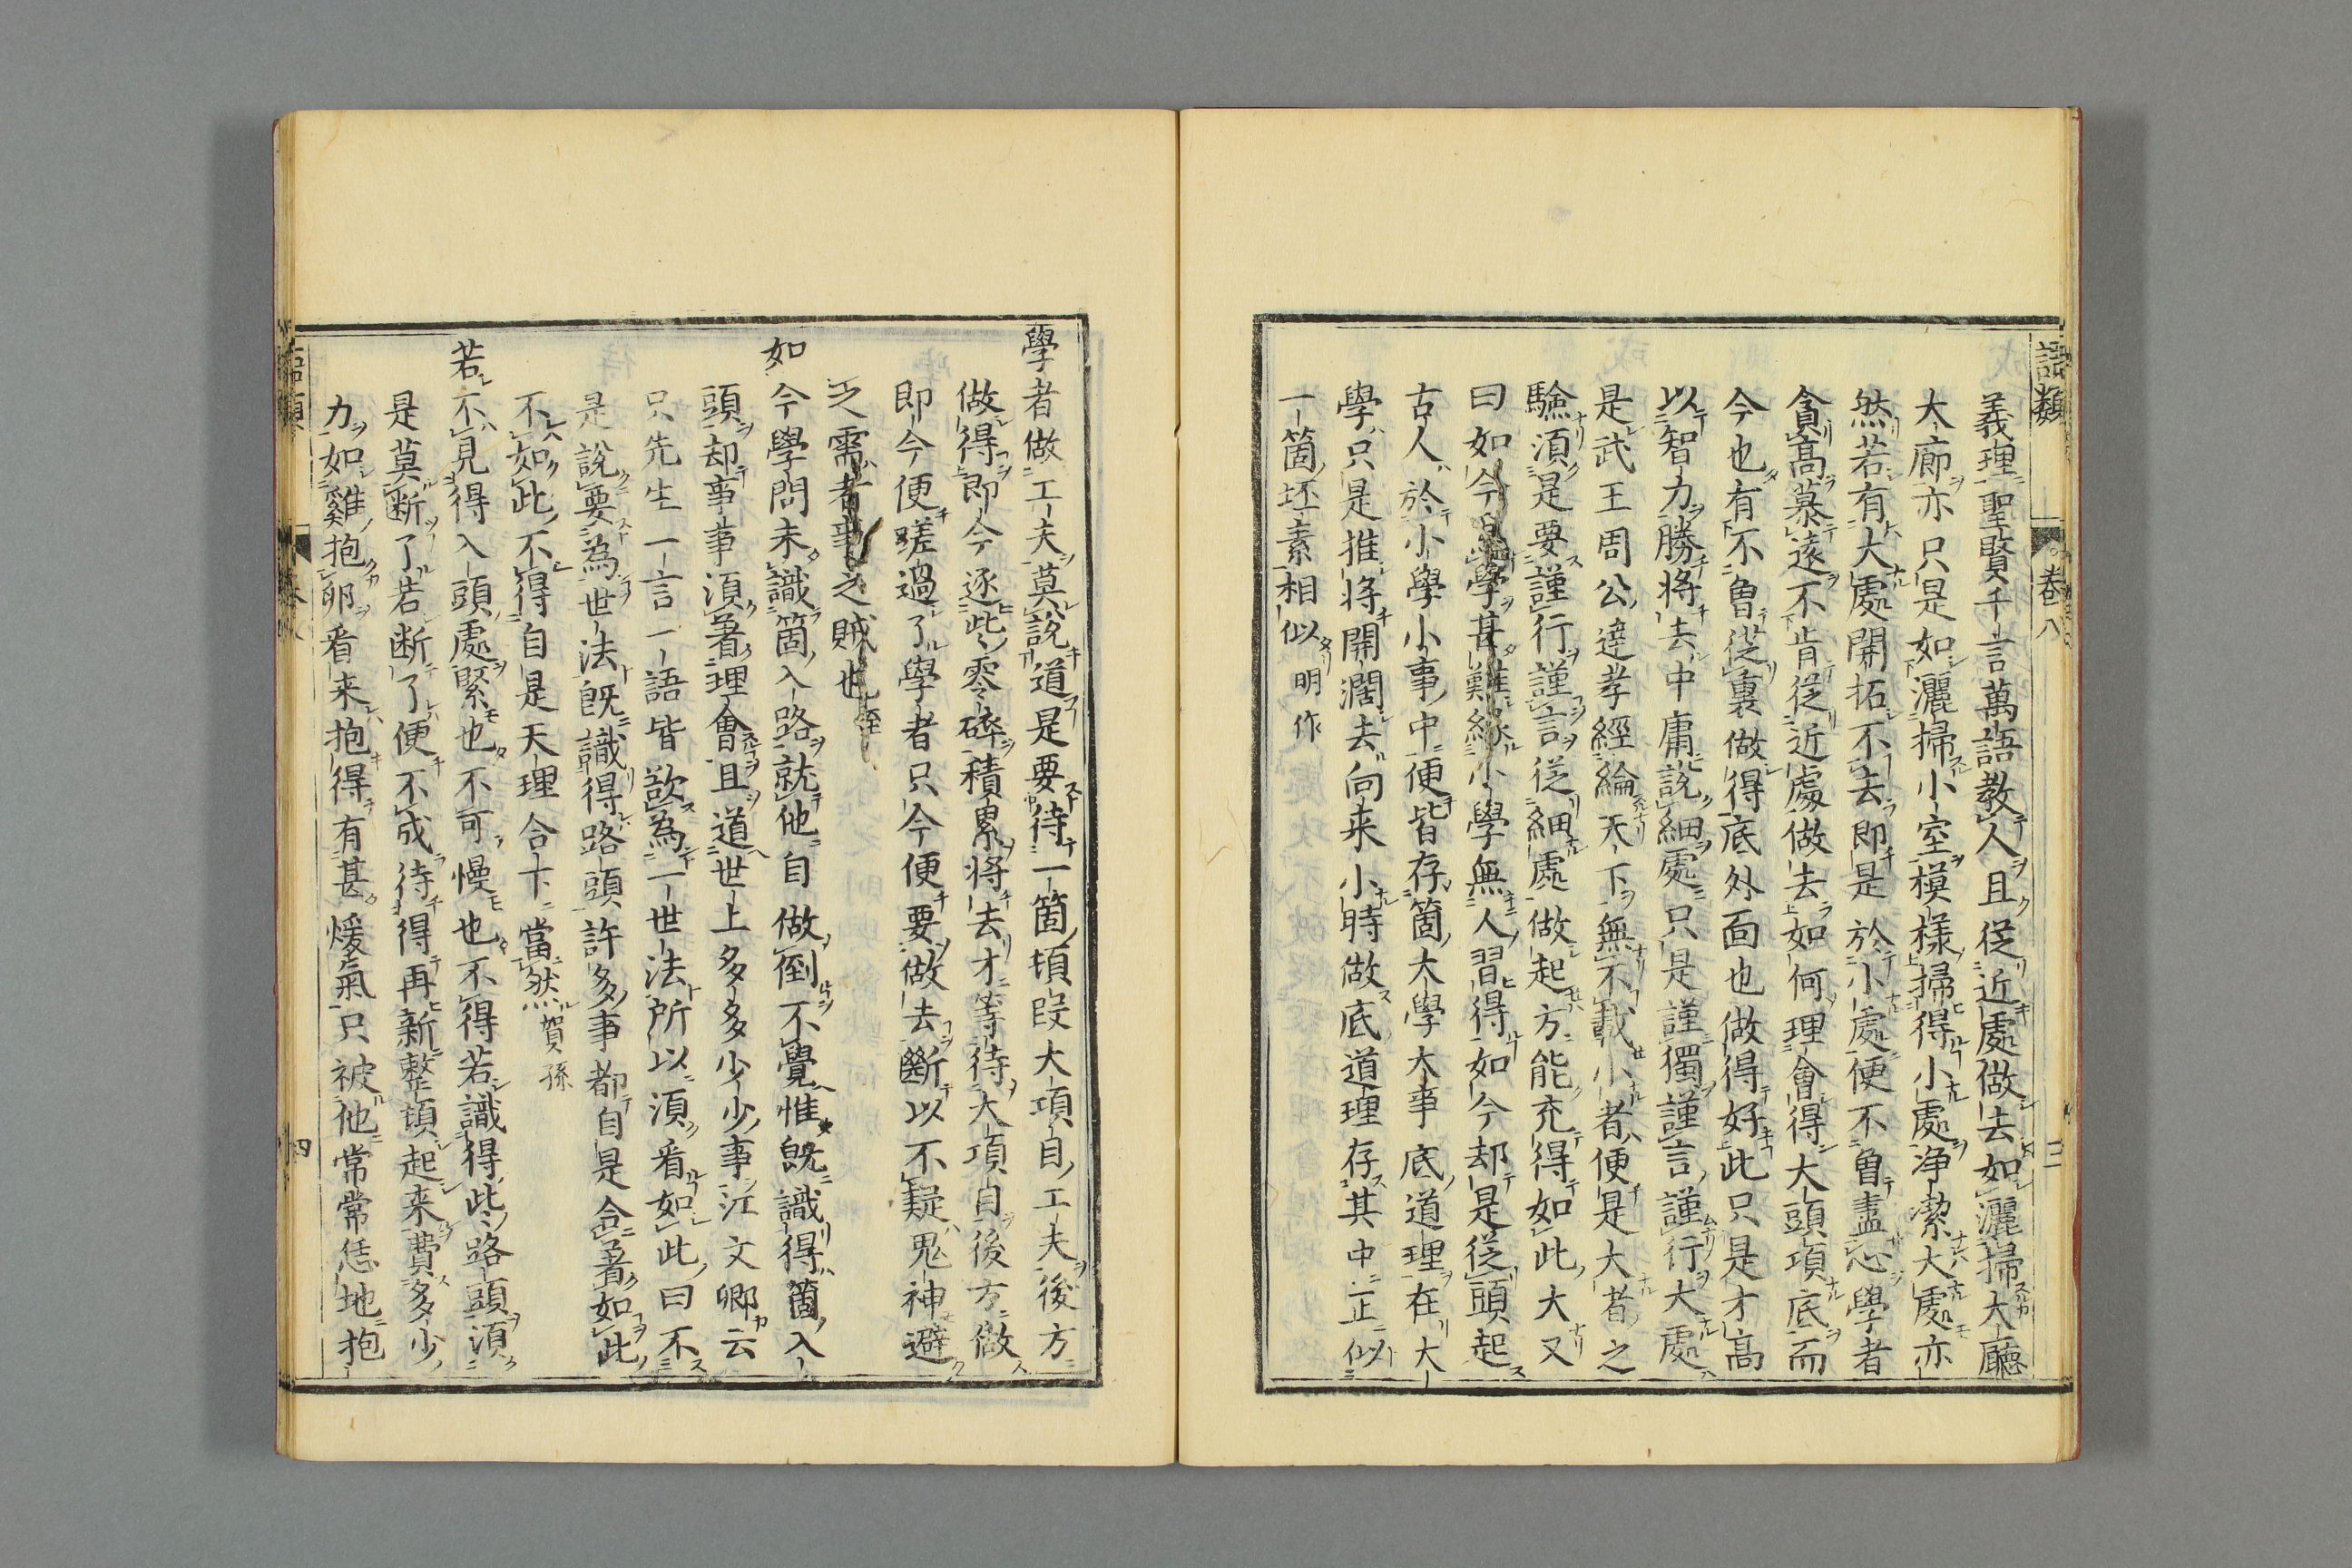 語類 卷八 三
義理聖賢千言萬語教人且從近處做去如灑掃大廳
大廊亦只是如灑掃小室模樣掃得小處淨潔大處亦
然若有大處開拓不去即是於小處便不曾盡心學者
貪高慕遠不肯從近處做去如何理會得大頭項底而
今也有不曾從裏做得底外面也做得好此只是才高
以智力勝將去中庸說細處只是謹獨謹言謹行大處
是武王周公達孝經綸天下無不載小者便是大者之
驗須是要謹行謹言從細處做起方能充得如此大又
曰如今為學甚難緣小學無人習得如今却是從頭起
古人於小學小事中便皆存箇大學大事底道理在大
學只是推將開濶去向来小時做底道理存其中正似
一箇坯素相似明作
學者做工夫莫說道是要待一箇頓段大項目工夫後方
做得即今逐些零碎積累將去才等待大項目後方做
即今便蹉過了學者只今便要做去斷以不疑鬼神避
之需者事之賊也至
如今學問未識箇入路就他自做倒不覺惟既識得箇入
頭却事事須著理會且道世上多多少少事江文卿云
只先生一言一語皆欲為一世法所以須看如此曰不
是說要為世法既識得路頭許多事都自是合著如此
不如此不得自是天理合下當然賀孫
若不見得入頭處緊也不可慢也不得若識得此路頭須
是莫断了若断了便不成待得再新整頓起来費多少
力如雞抱卵看来抱得有甚煖氣只被他常常恁地抱
語類 卷八 四